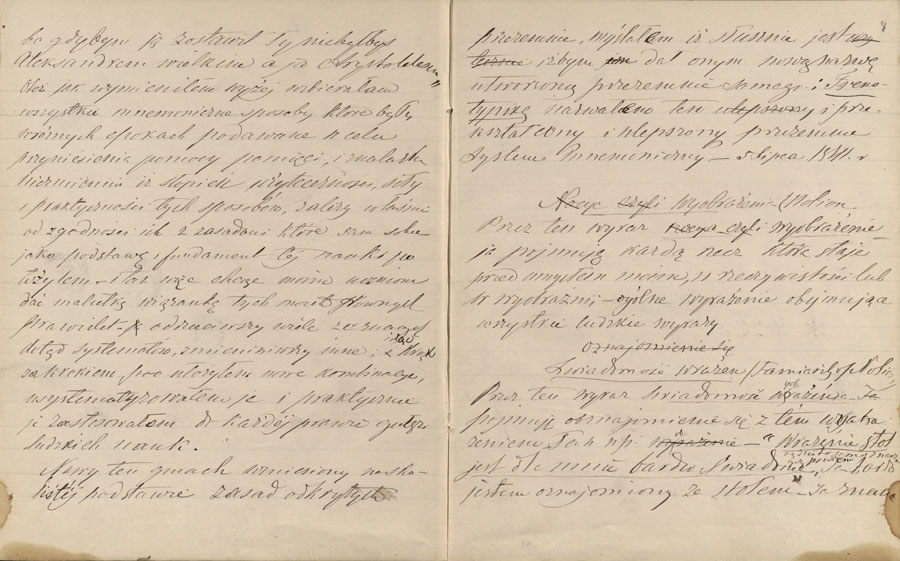 bo gdybym ją zostawił ty niebyłbyś
Aleksandrem wielkim a ja Arystotelesem"
Otóż jak wymieniłem wyżej rozbierałem
wszystkie mnemoniczne sposoby które były
w różnych epokach podawane w celu
przyniesienia pomocy pamięci, i znalazłem
niezmiennie iż stopień użyteczności, siły
i praktyczności tych sposobów, zależy właśnie
od zgodności ich z zasadami które sam sobie
jako podstawę i fundament tej nauki po
łożyłem
dać maleńką wiązankę tych
prawideł odrzuciwszy wiele ze znanych
dotąd systematów, zmieniwszy inne i idąc krok
za krokiem, potworzyłem nowe kombinacje,
wysystematyzowałem je i praktycznie
je zastosowałem do każdej prawie gałęzi
ludzkich nauk.
Nowy ten gmach wzniesiony na ska-
listej podstawie zasad odkrytych
8
przezemnie, myślałem iż słusznie jest
iżbym dał onym nową nazwę
utworzoną przezemnie samego: Freno-
typiką nazwałem ten ulepszony i prze-
kształcony i ulepszony przezemnie
System Mnemoniczny – 5 lipca 1841. r
Nocya czyli Wyobrażenie – (Notion
Przez ten wyraz nocya czyli wyobrażenie
ja pojmuję każdą rzecz która staje
przed umysłem moim, w rzeczywistości lub
w wyobraźni – ogólne wyrażenie obejmujące
wszystkie ludzkie wyrazy
oznajomienie się
Świadomość wrażeń (Familiarity of Notions
Przez ten wyraz świadomość wrażenia Ja
pojmuję obznajomienie się z tém wyobra
żeniem Jak np: wrażenie – "Wrażenie stół
jest dla mnie bardzo świadome, Ja bardzo
jestem oznajomiony ze stołem" – Ja znam